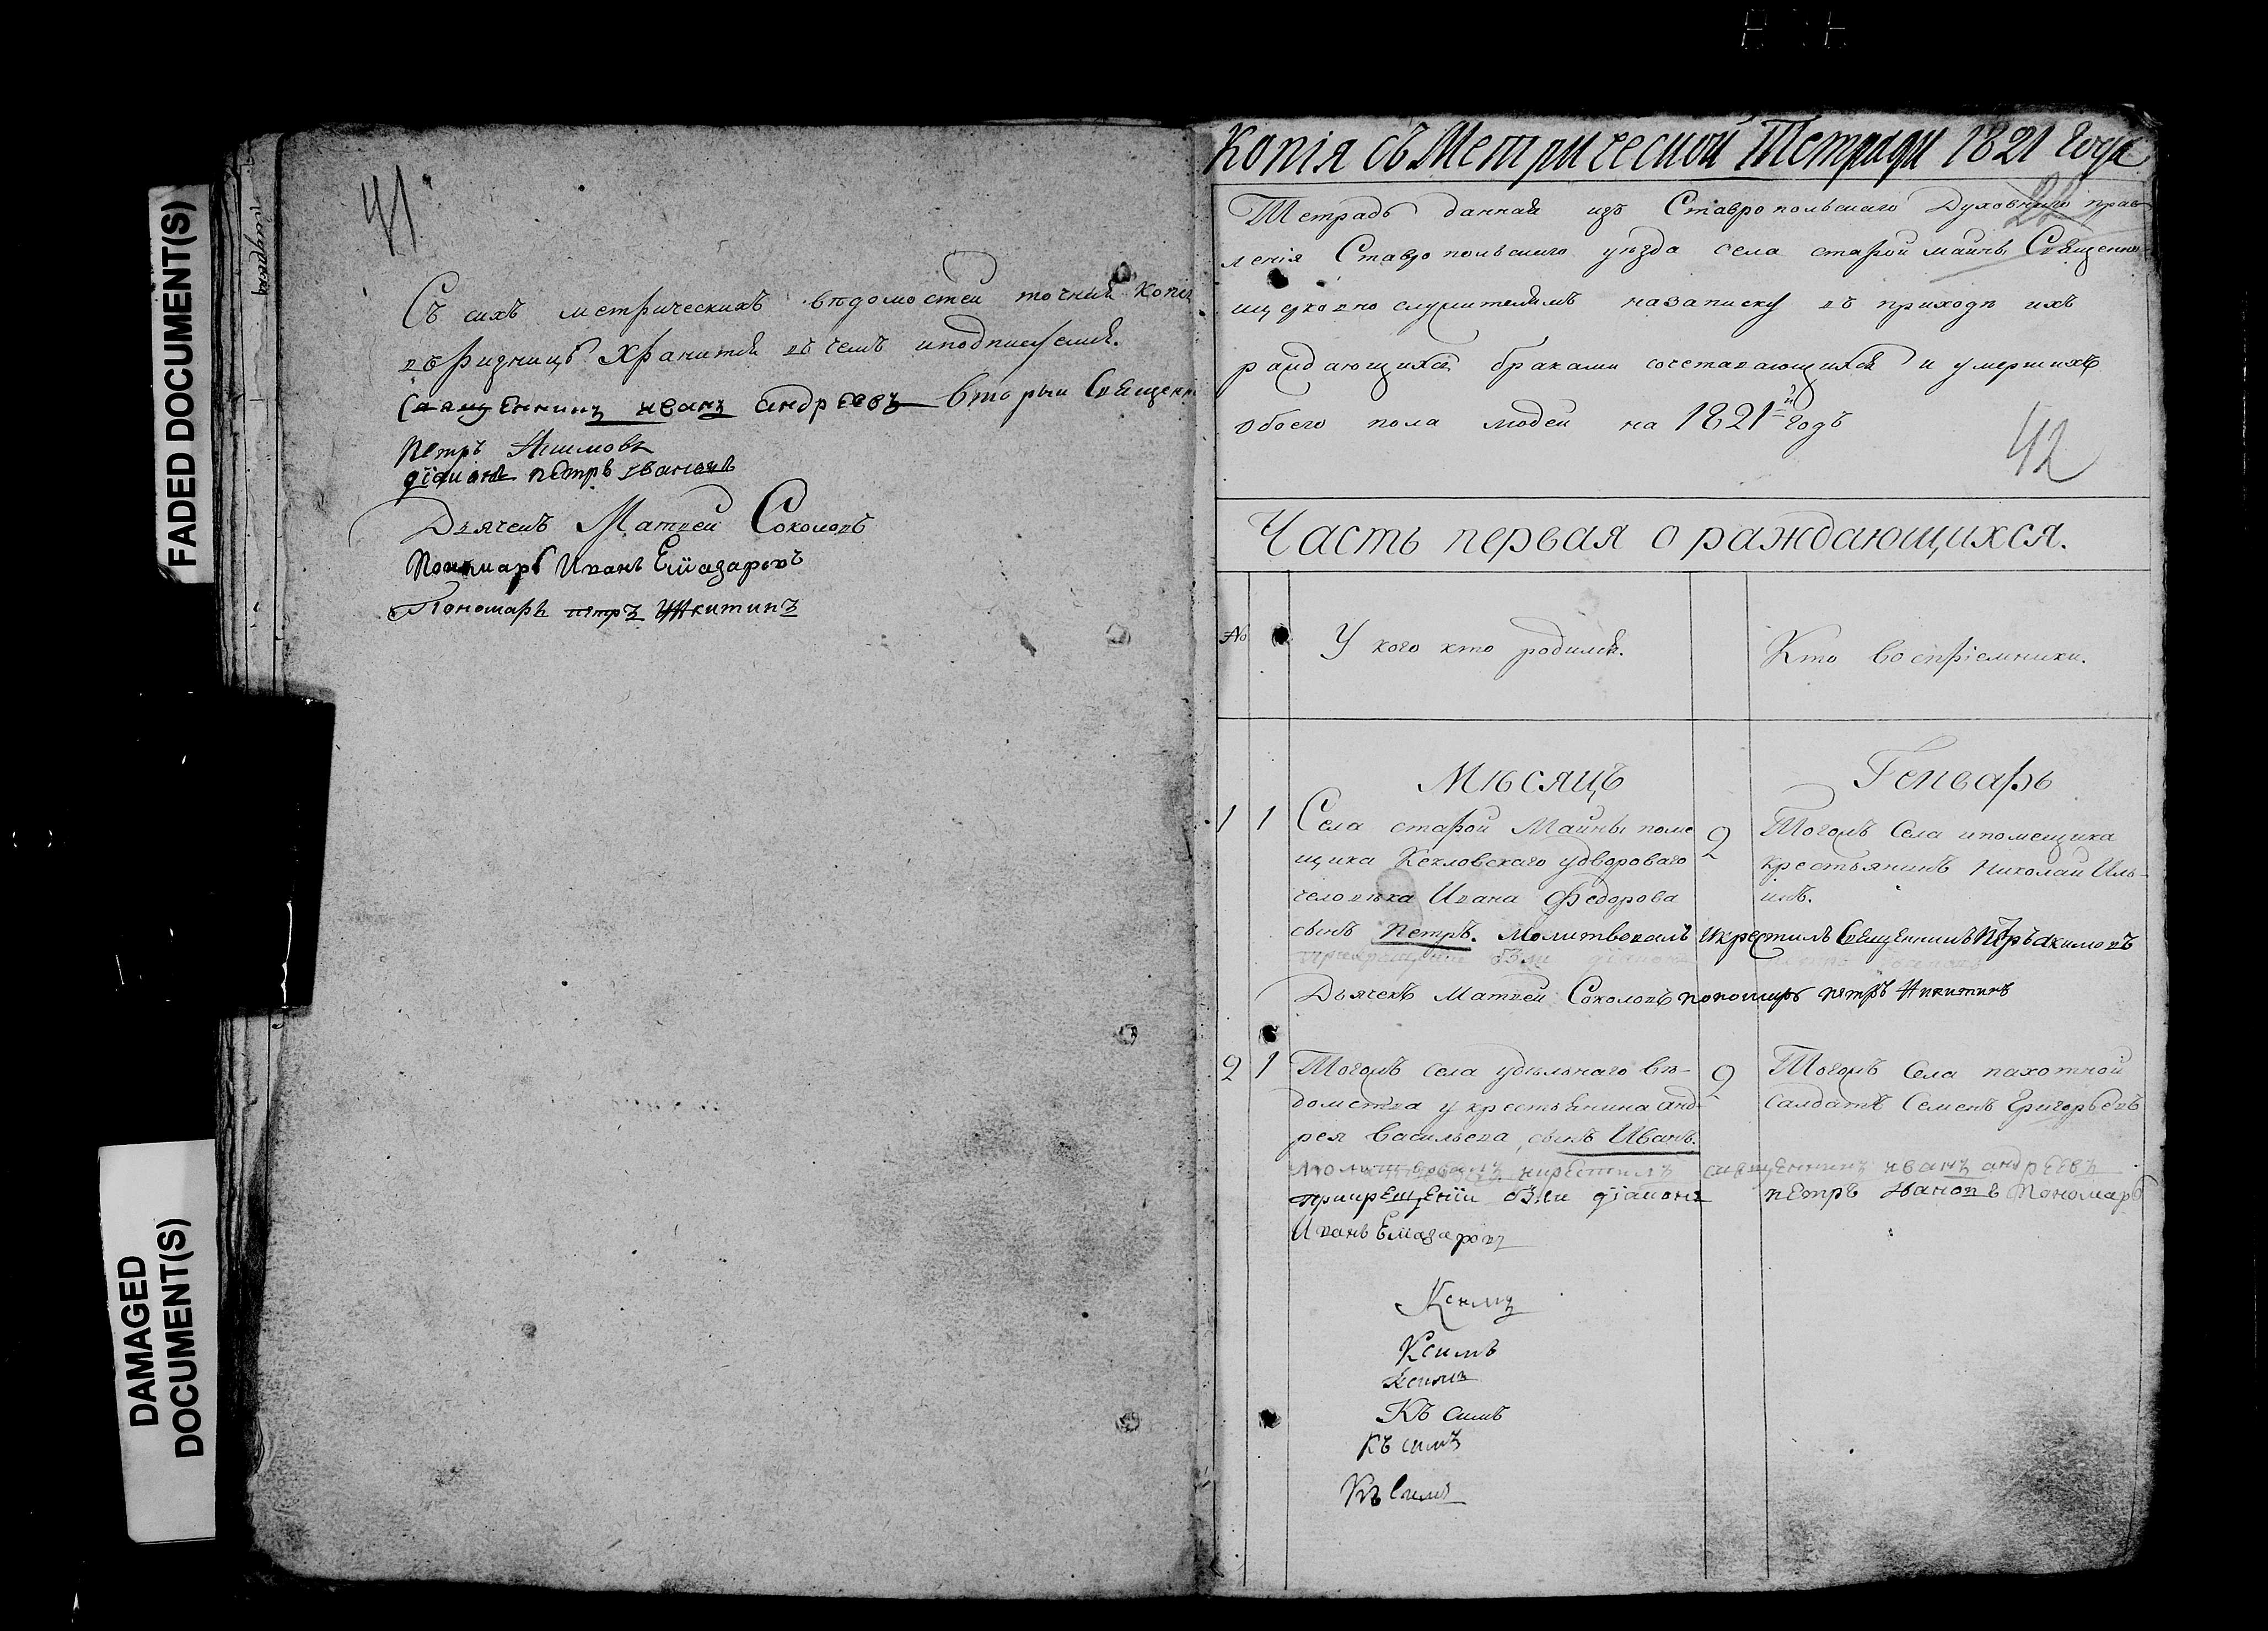 FADED DOCUMENT(S)
DAMAGED
DOCUMENT(S)
41
Съ сихъ метрическихъ вѣдомостей точная копія
въ ризницѣ хранится въ чемъ и подписуемся.
Священникъ иванъ андрѣевъ Вторый Священн
Петръ Акимовъ
діаконъ пѣтръ ивановъ
Дьячекъ Матвей Соколовъ
Пономарь Иванъ Елиазаровъ
Пономарь петръ Никитинъ
Копія съ Метрической Тетради 1821 года
Тетрадь данная изъ Ставропольскаго Духовнаго прав
ленія Ставропольскаго уѣзда села старой майны Священно
и церковно служителямъ на записку въ приходѣ ихъ
раждающихся браками сочетавающихся и умершихъ
обоего пола людей на 1821й годъ
42
Часть первая о раждающихся.
№ У кого кто родился. Кто воспріемники.
Мѣсяцъ Генварь
1 1 Села старой Майны поме 2 Тогожъ Села и помещика
щика Кекловскаго у двороваго крестьянинъ Николай Иль-
человѣка Ивана Федорова инъ.
сынъ Петръ. Молитвовалъ и крестилъ Священникъ Пѣтръ Акимовъ
Дьячекъ Матвей Соколовъ пономарь петръ Никитинъ
2 1 Тогожъ села удѣльнаго вѣ- 2 Тогожъ Села пахотной
домства у крестьянина анд салдатъ Семенъ Григорьевъ
рея Васильева сынъ Иванъ.
молитвовалъ и крѣстилъ священникъ иванъ андрѣевъ
при крещеніи были діаконъ пѣтръ Ивановъ Пономарь
Иванъ Елиазаровъ
К симъ
К симъ
К симъ
Къ симъ
Къ симъ
Къ симъ